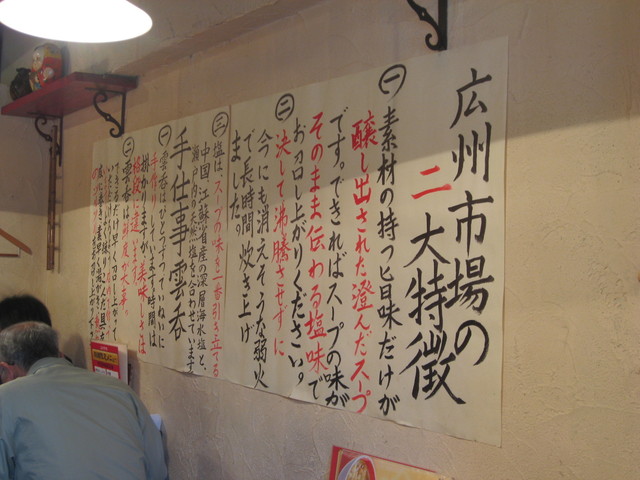 広州市場の
二大特徴
一 素材の持つ旨味だけが
醸し出された澄んだスープ
です。できればスープの味が
そのまま伝わる塩味で
お召し上がりください。
二 決して沸騰させずに
今にも消えそうな弱火
で長時間炊き上げ
ました。
三 塩は、スープの味を一番引き立てる
中国江蘇省産の深層海水塩と、
瀬戸内の天然塩を合わせています
手仕事雲呑
一 雲呑はひとつずつていねいに
手作りしています。時間は
掛かりますが、美味しさは
格段に違います。
二 雲呑は